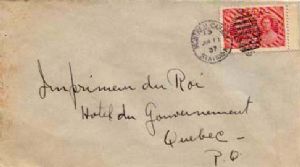 MONTREAL
37
Imprimeur du Roi
Hotel du Gouvernement
Quebec -
P.Q.